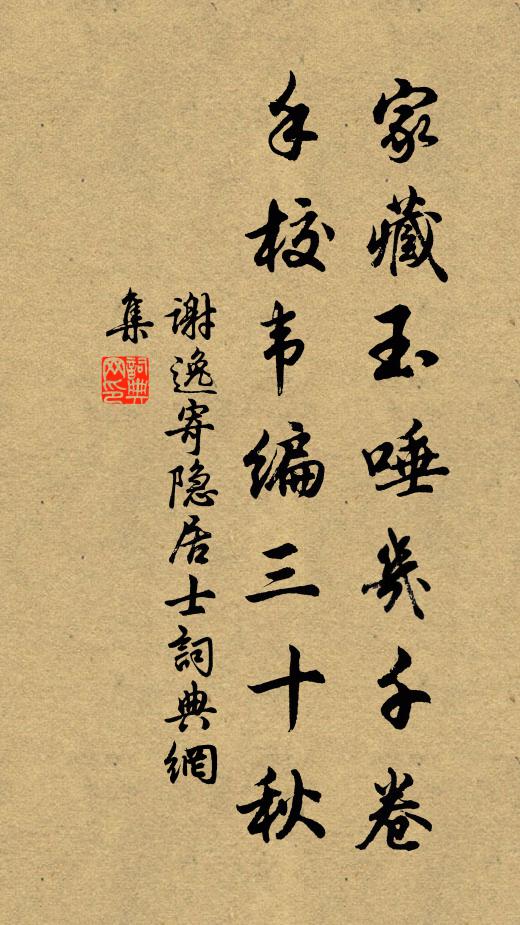 家藏玉唾幾千卷
手校韦编三十秋
谢逸寄隐居士詞典網
集
詞典
网印